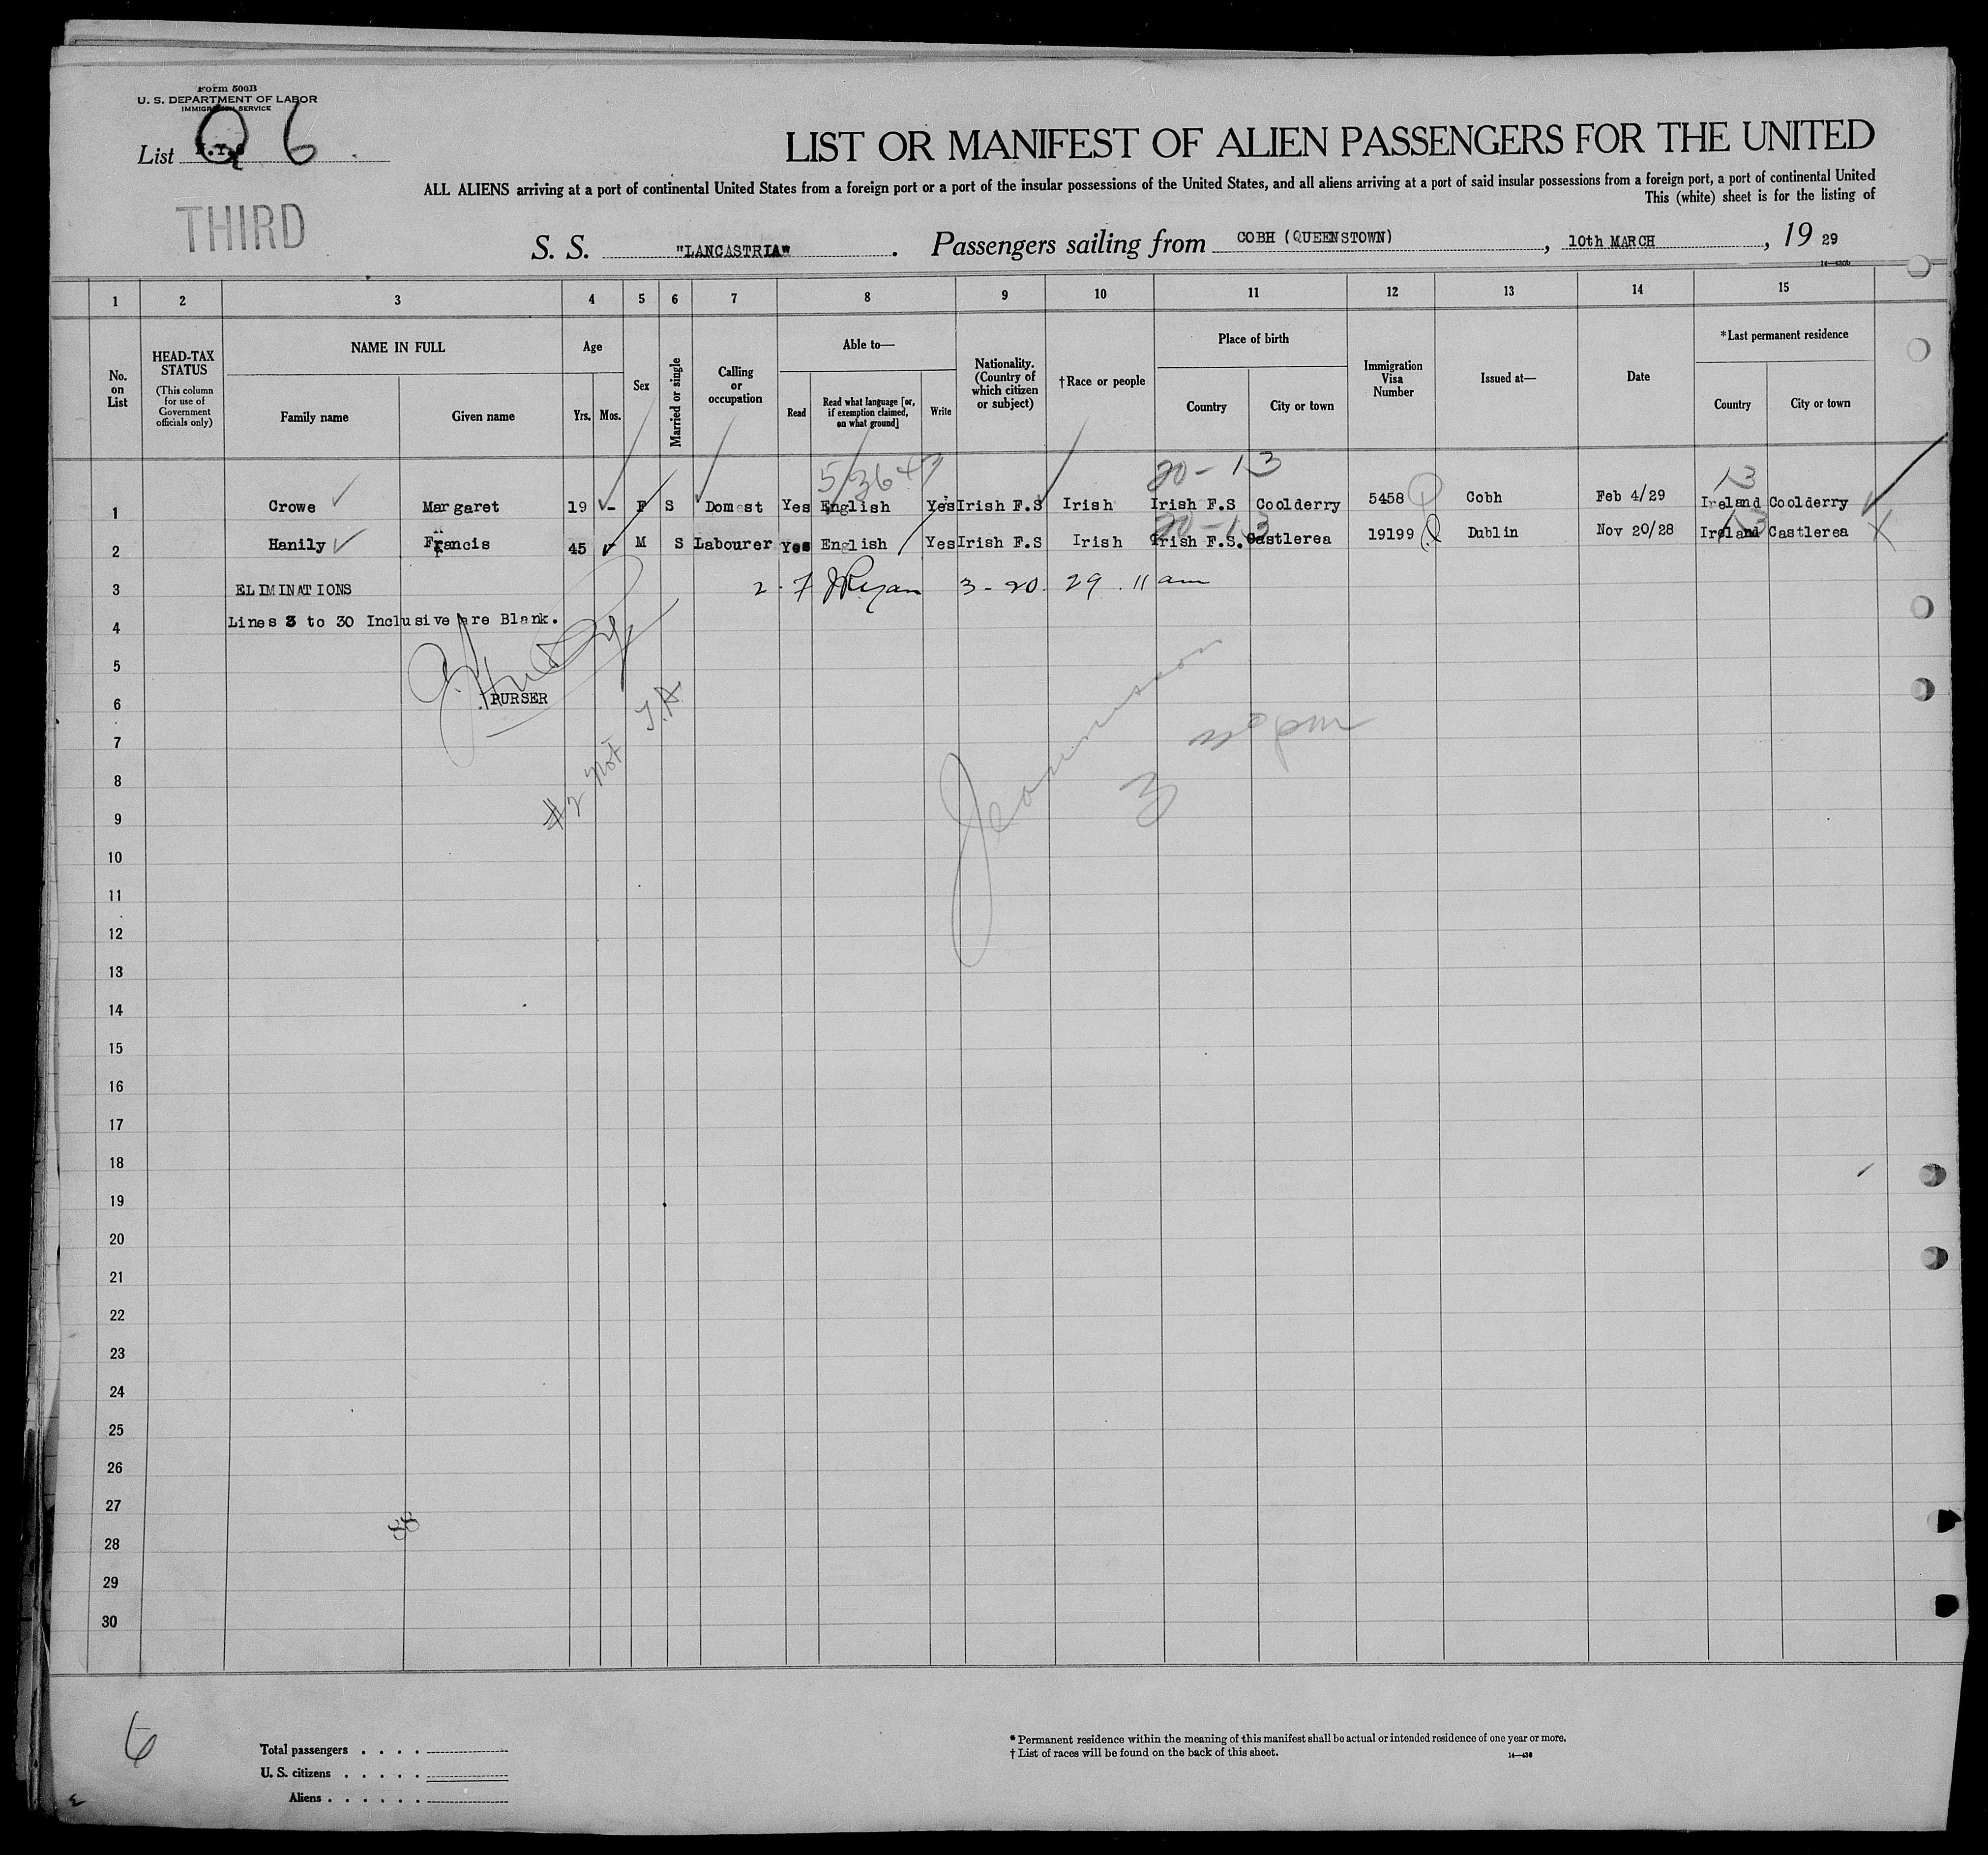 Form 500B
U. S. DEPARTMENT OF LABOR
IMMIGRATION SERVICE
List Q 6
THIRD
LIST OR MANIFEST OF ALIEN PASSENGERS FOR THE UNITED
ALL ALIENS arriving at a port of continental United States from a foreign port or a port of the insular possessions of the United States, and all aliens arriving at a port of said insular possessions from a foreign port, a port of continental United
This (white) sheet is for the listing of
S. S. "LANCASTRIA" . Passengers sailing from COBH (QUEENSTOWN) , 10th MARCH , 19 29
1 2 3 4 5 6 7 8 9 10 11 12 13 14 15
No. on List
HEAD-TAX STATUS (This column for use of Government officials only)
NAME IN FULL
Family name
Given name
Age
Yrs.
Mos.
Sex
Married or single
Calling or occupation
Able to—
Read
Read what language [or, if exemption claimed, on what ground]
Write
Nationality. (Country of which citizen or subject)
†Race or people
Place of birth
Country
City or town
Immigration Visa Number
Issued at—
Date
*Last permanent residence
Country
City or town
20-13 13
1 Crowe Margaret 19 - F S Domest Yes English Yes Irish F.S Irish Irish F.S Coolderry 5458 Cobh Feb 4/29 Ireland Coolderry
20-13 13
2 Hanily Francis 45 - M S Labourer Yes English Yes Irish F.S Irish Irish F.S. Castlerea 19199 Dublin Nov 20/28 Ireland Castlerea X
3 ELIMINATIONS 2. F J Ryan 3-20. 29. 11 am
4 Lines 3 to 30 Inclusive are Blank.
5
6 PURSER
7
8 #2 not
9
10
11
12
13
14
15
16
17
18
19
20
21
22
23
24
25
26
27
88
28
29
30
6
Total passengers . . . .
U. S. citizens . . . . .
Aliens . . . . . .
* Permanent residence within the meaning of this manifest shall be actual or intended residence of one year or more.
† List of races will be found on the back of this sheet.
14—430